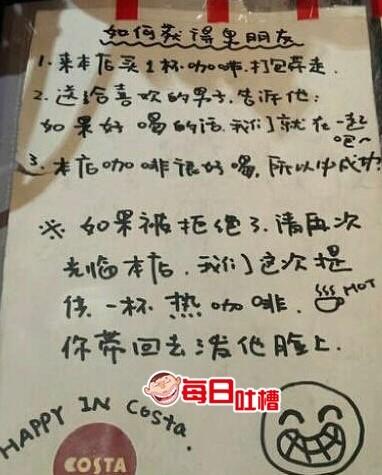 如何获得男朋友
1.来本店买1杯咖啡.打包带走.
2.送给喜欢的男子.告诉他:
如果好喝的话.我们就在一起
吧~
3.本店咖啡很好喝.所以 成功
※如果被拒绝了.请再次
光临本店.我们这次提
供一杯热咖啡. HOT
你带回去泼他脸上.
每日吐槽
HAPPY IN Costa.
COSTA